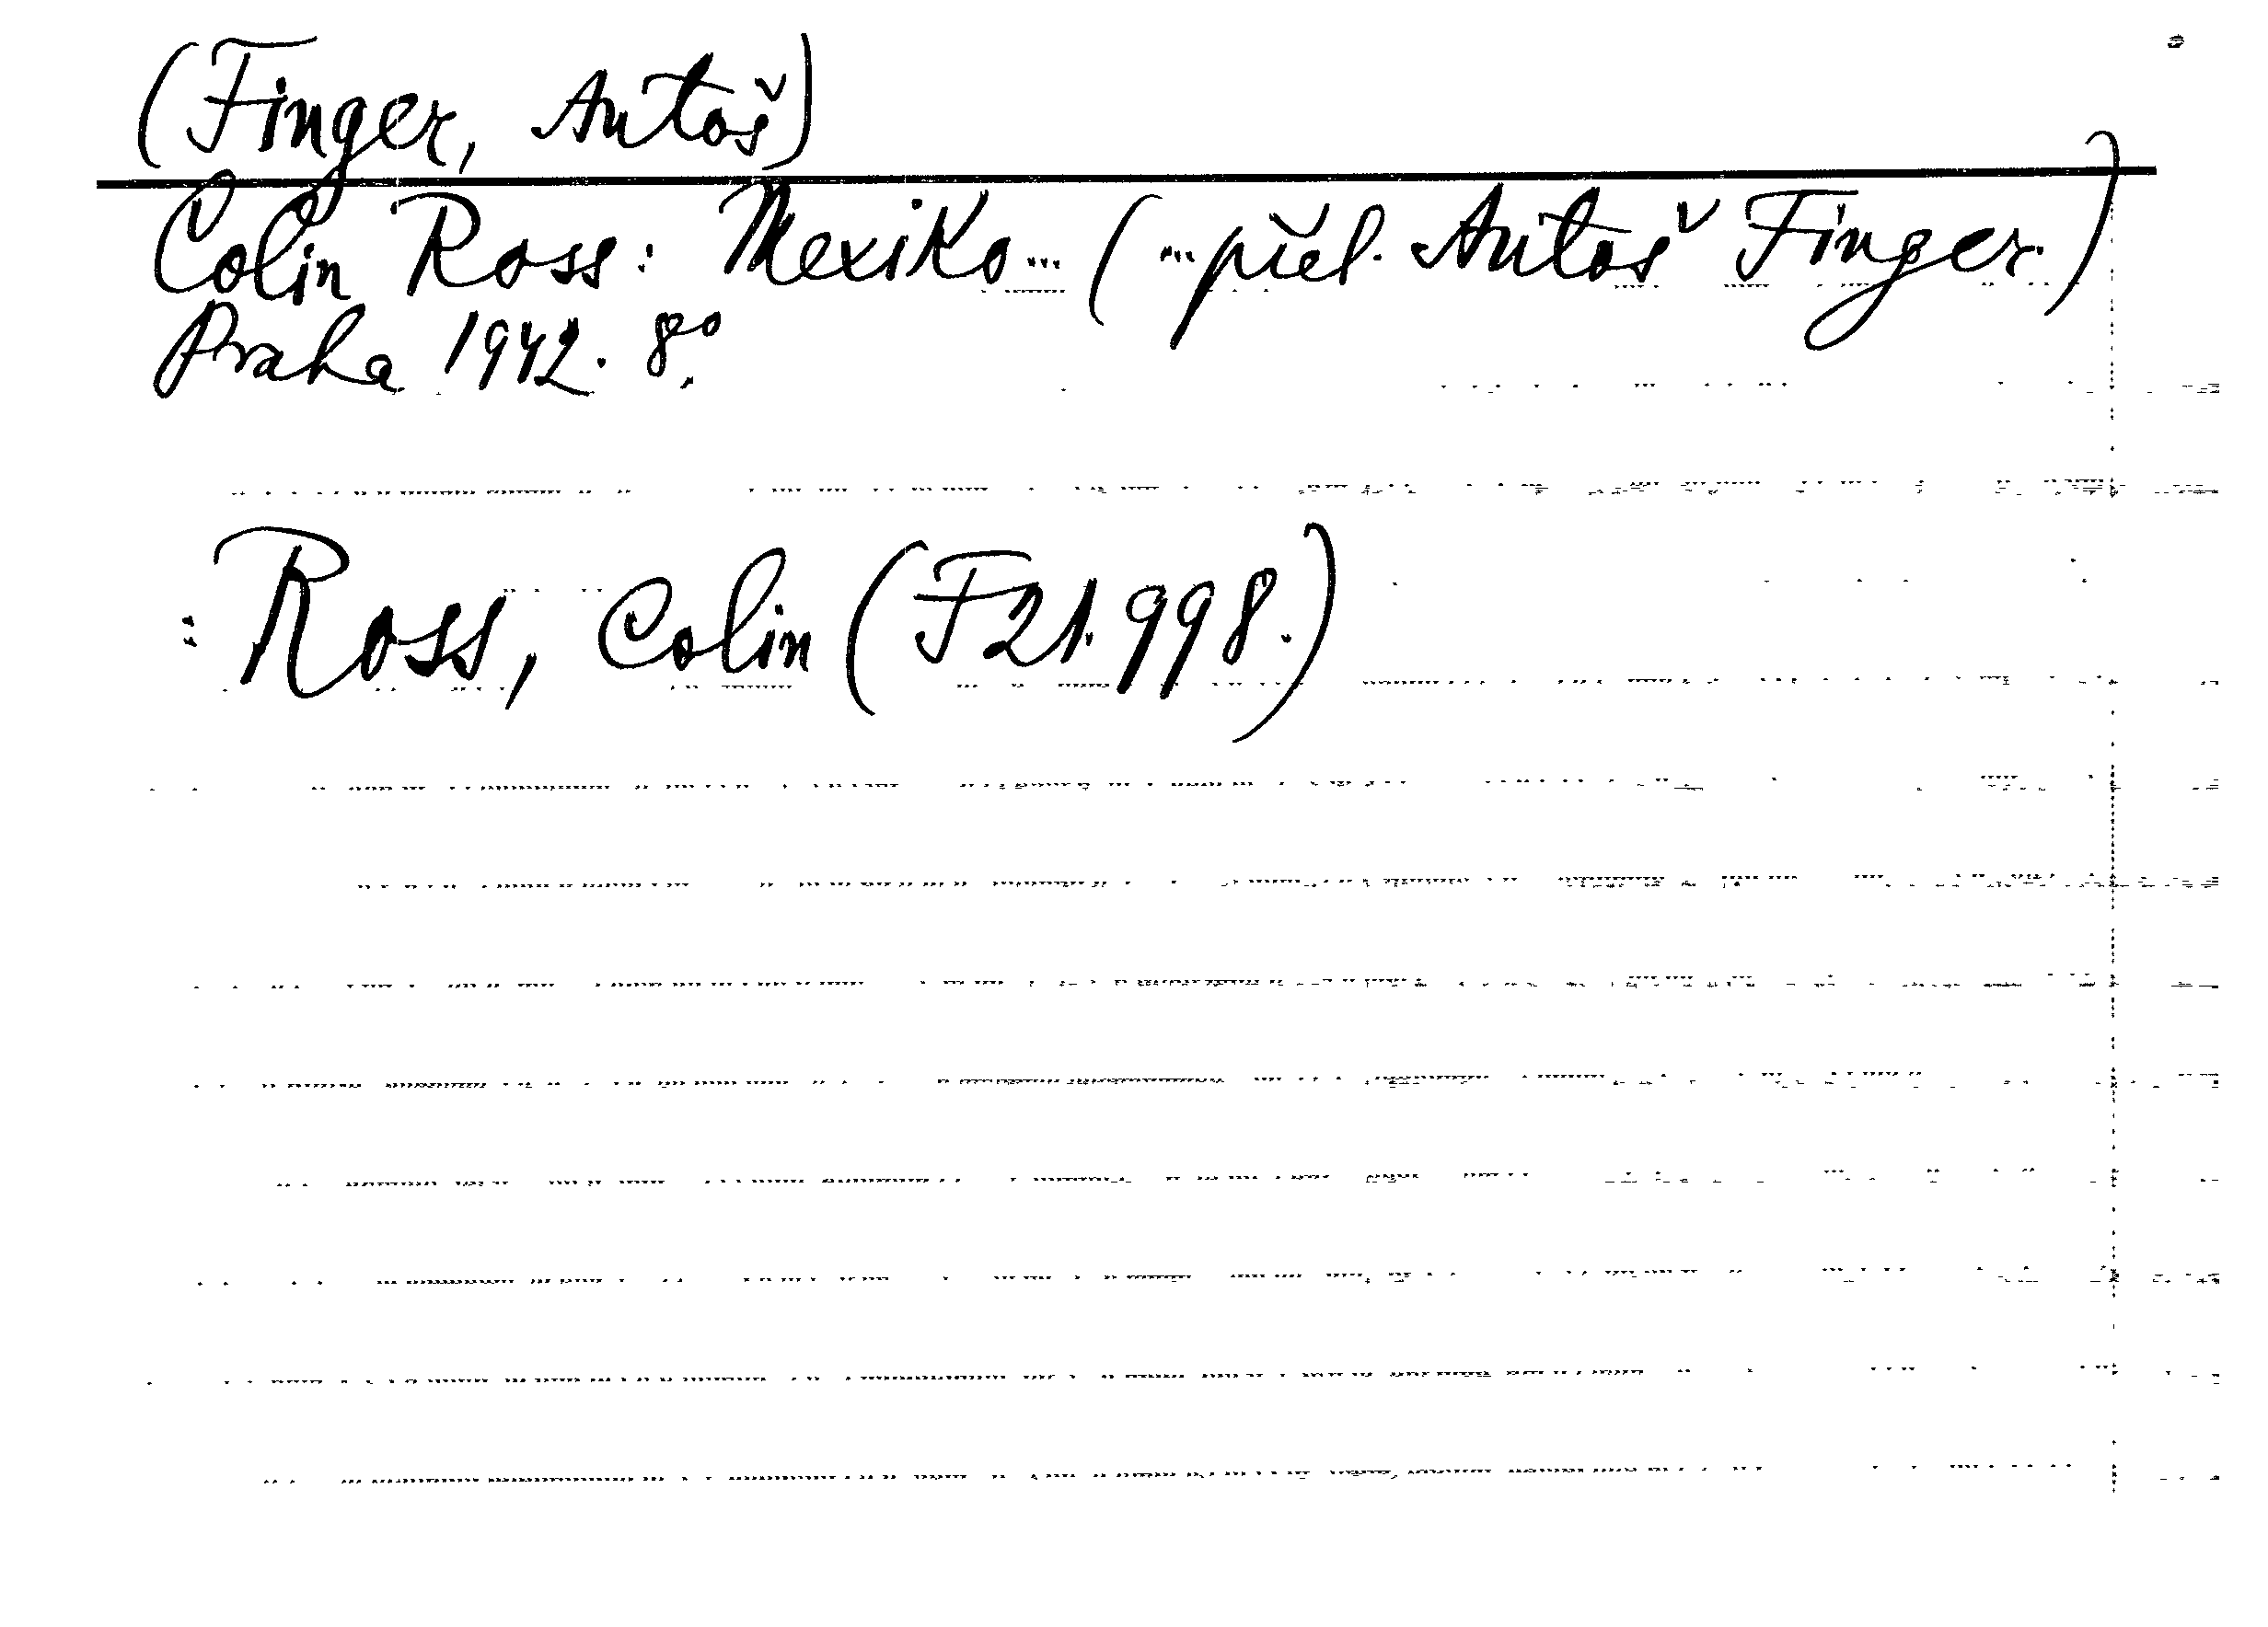 (Finger, Antoš)
Colin Ross: Mexiko... (...přel. Antoš Finger.)
Praha 1942. 8°.
: Ross, Colin (F21.998.)